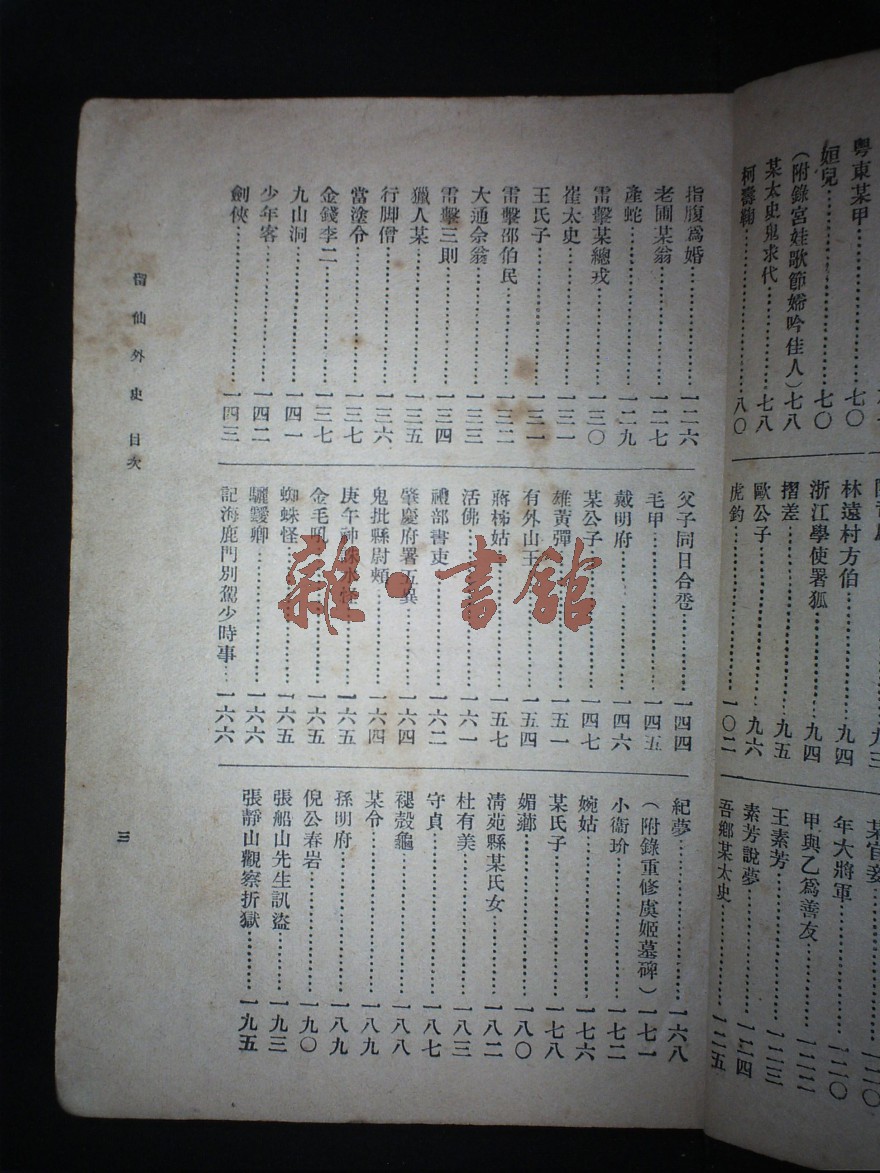 粵東某甲……七〇
姮兒……七〇
（附錄宮娃歌節婦吟佳人）七八
某太史鬼求代……七八
柯壽鞠……八〇
林遠村方伯……九四
浙江學使署狐……九四
摺差……九五
歐公子……九六
虎釣……一〇二
某宦妾……一二〇
年大將軍……一二〇
甲與乙爲善友……一二二
王素芳……一二三
素芳說夢……一二四
吾鄉某太史……一二五
指腹爲婚……一二六
老圃某翁……一二七
產蛇……一二九
雷擊某總戎……一三〇
崔太史……一三一
王氏子……一三一
雷擊邵伯民……一三二
大通佘翁……一三三
雷擊三則……一三四
獵人某……一三五
行脚僧……一三六
當塗令……一三七
金錢李二……一三七
九山洞……一四一
少年客……一四二
劍俠……一四三
父子同日合巹……一四四
毛甲……一四五
戴明府……一四六
某公子……一四七
雄黃彈……一五一
有外山王……一五四
蔣柹姑……一五七
活佛……一六一
禮部書吏……一六二
肇慶府署五異……一六四
鬼批縣尉頰……一六四
庚午神誅水怪……一六五
金毛吼……一六五
蜘蛛怪……一六五
驪靉卿……一六六
記海鹿門別駕少時事……一六六
紀夢……一六八
（附錄重修虞姬墓碑）一七一
小衞玠……一七二
婉姑……一七六
某氏子……一七八
媚薌……一八〇
淸苑縣某氏女……一八二
杜有美……一八三
守貞……一八七
褪殼龜……一八八
某令……一八九
孫明府……一八九
倪公春岩……一九〇
張船山先生訊盜……一九三
張靜山觀察折獄……一九五
留仙外史 目次
三
雜·書館